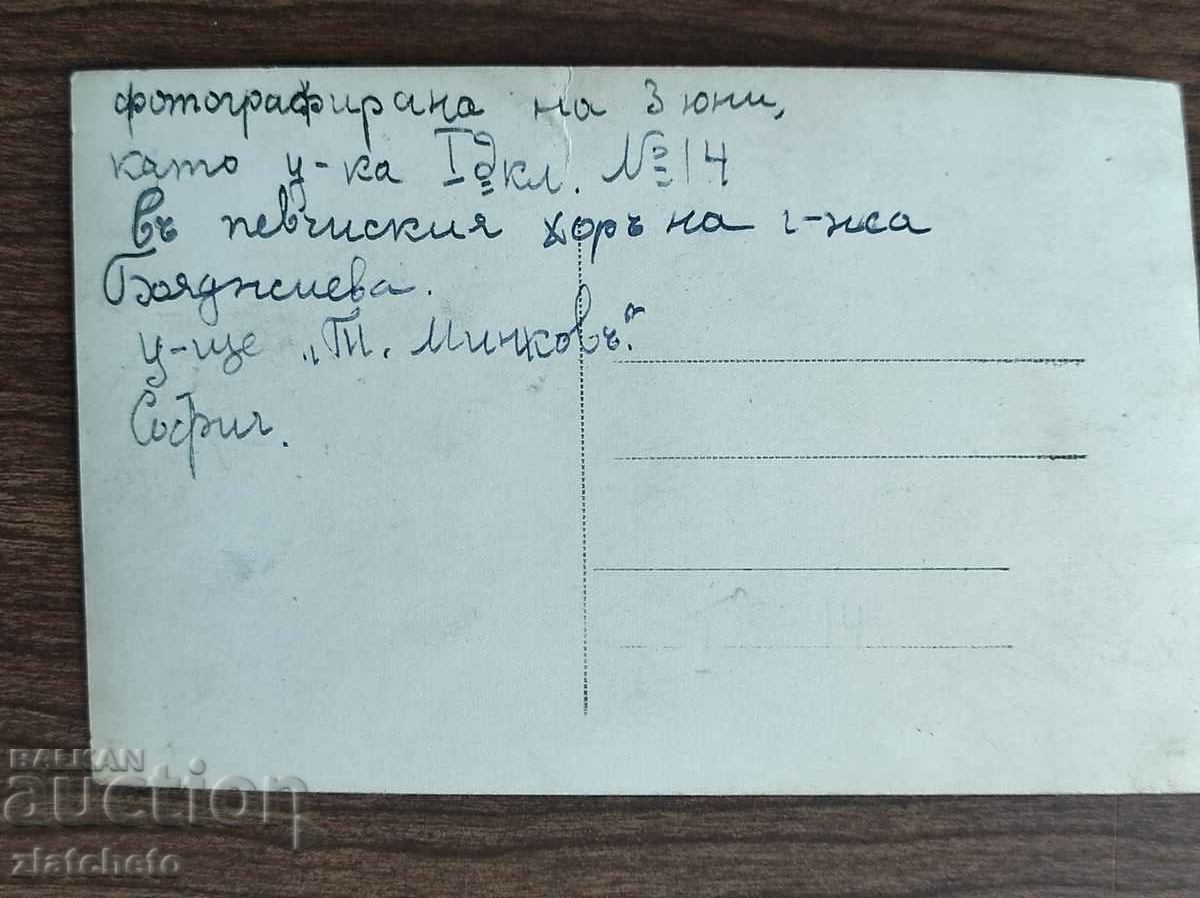 фотографирана на 3 юни,
като у-ка I д кл. № 14
въ певчиския хоръ на г-жа
Бояджиева.
у-ще „Т. Минковъ".
София.
BALKAN
auction
zlatcheto